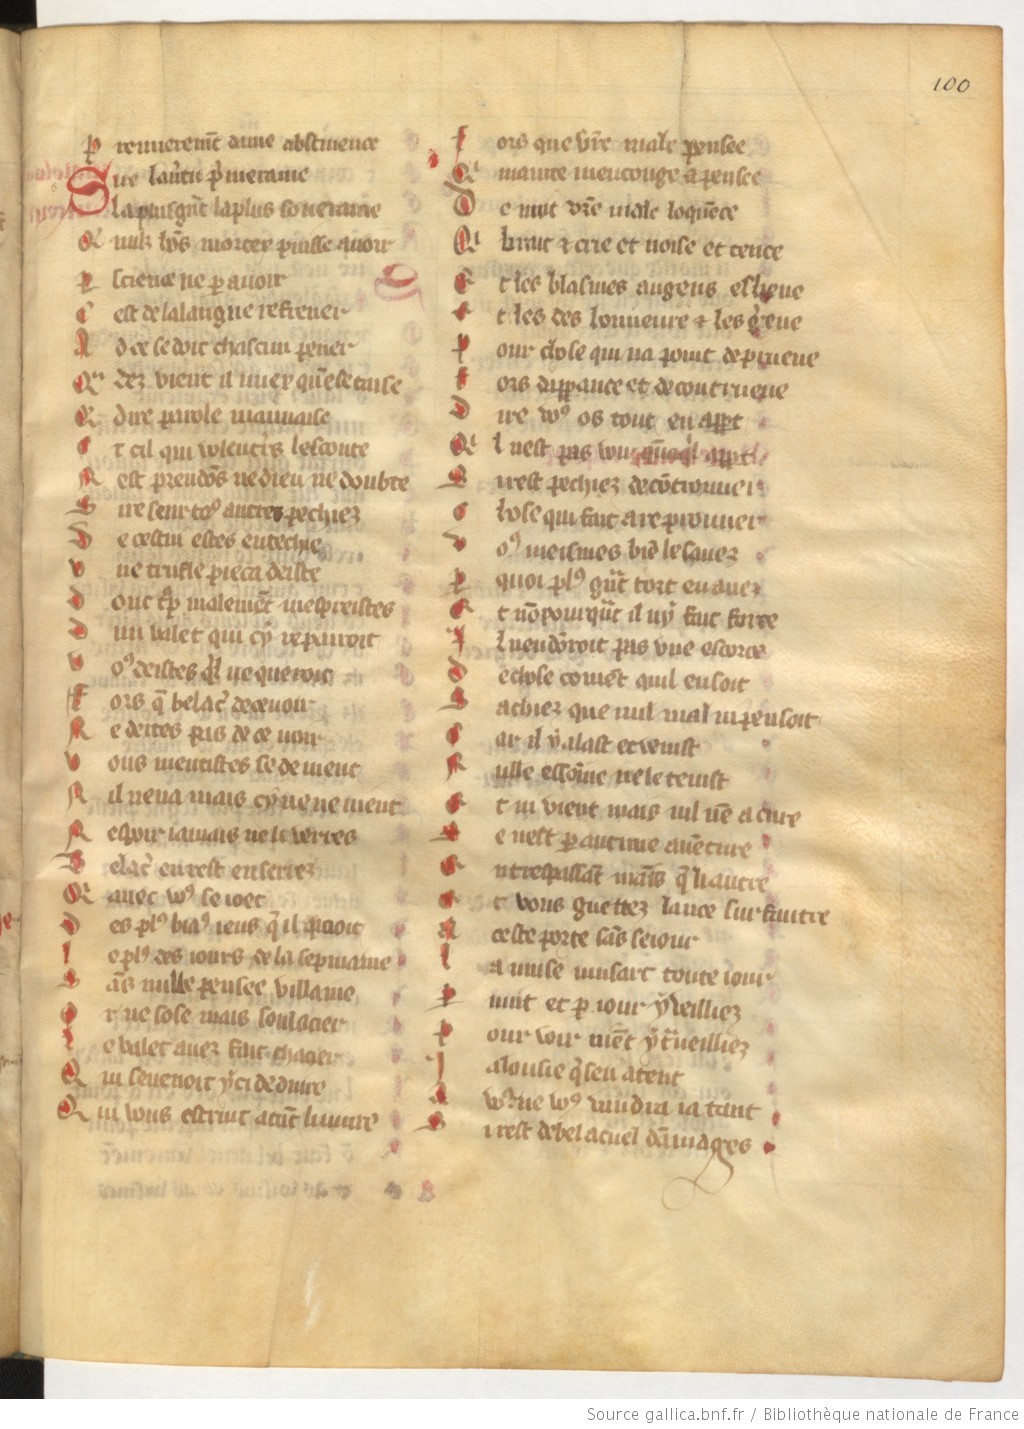 100
P remierement dame abstinence
S ire la v̾tu p̾meraine
La plus gñt la plus souveraine
Q nulz hõs morter puisse avoir
P science ne p avoir
C est de la langue refrener
A d ce se doit chascun pener
Q dez vient il miex quẽ se taise
Q dire parole mauvaise
E t cil qui volentiers lescoute
N est preudõs ne dieu ne doubte
S ire seur to9 autres pechiez
D e cestui estes entechiez
V ne trufle pieca deiste
D ont malemẽt mespreistes
D un valet qui cy reperoit
V o9 deistes ql ne queroit
F ors q̃ bel ac̾ decevoir
N e deites pas de ce voir
V ous mentistes se devient
N il ne va mais cy ne ne vient
N espoir iamais ne li verres
B el ac̾ en rest enserrez
Q avec vo9 se ioet
D es pl9 biau9 ieus q̃ il pooit
L e pl9 des iours de la sepmaine
S ãs nulle pensee villaine
O r ne sose mais soulacier
L e valet avez fait chacier
Q ui se venoit yci deduire
Q ui vous estrint atãt li nuire
F ors que vr̃e male pensee
Q mainte mencouge a pensee
D e mut vr̃e male loquẽce
Q brait & crie et noise et tence
E t les blasmes au gens eslieve
E t les des honneure & les g̾eve
P our chose qui na point de prueve
F ors dapparence et de contrueve
D ire vo9 os tout en appt
Q l nest pas voir
S i rest pechiez de cõtrouver
C hose qui fait a reprouver
V o9 meismes biẽ le savez
P quoi pl9 gñt tort en avez
E t nõ pourqñt il ny fait force
I l nen dõroit pas une escorce
D e chose comẽt quil en soit
S achiez que nul mal ni pensoit
C ar il y alast et venist
N ulle essoine ne le tenist
E t ni vient mais nil nẽ a cure
S e nest p aucune avẽture
E n trespassãt mais q̃ li autre
E t vous guettez lance sur fautre
A ceste porte sãs seiour
L a muse musart toute iour
P nuit et p iour y veilliez
P our voir niẽt y tveilliez
J alousie q̾ sen atent
A vo9 ne vo9 vaudra ia tant
S i rest de bel acuel dõmages
Source gallica.bnf.fr / Bibliothèque nationale de France